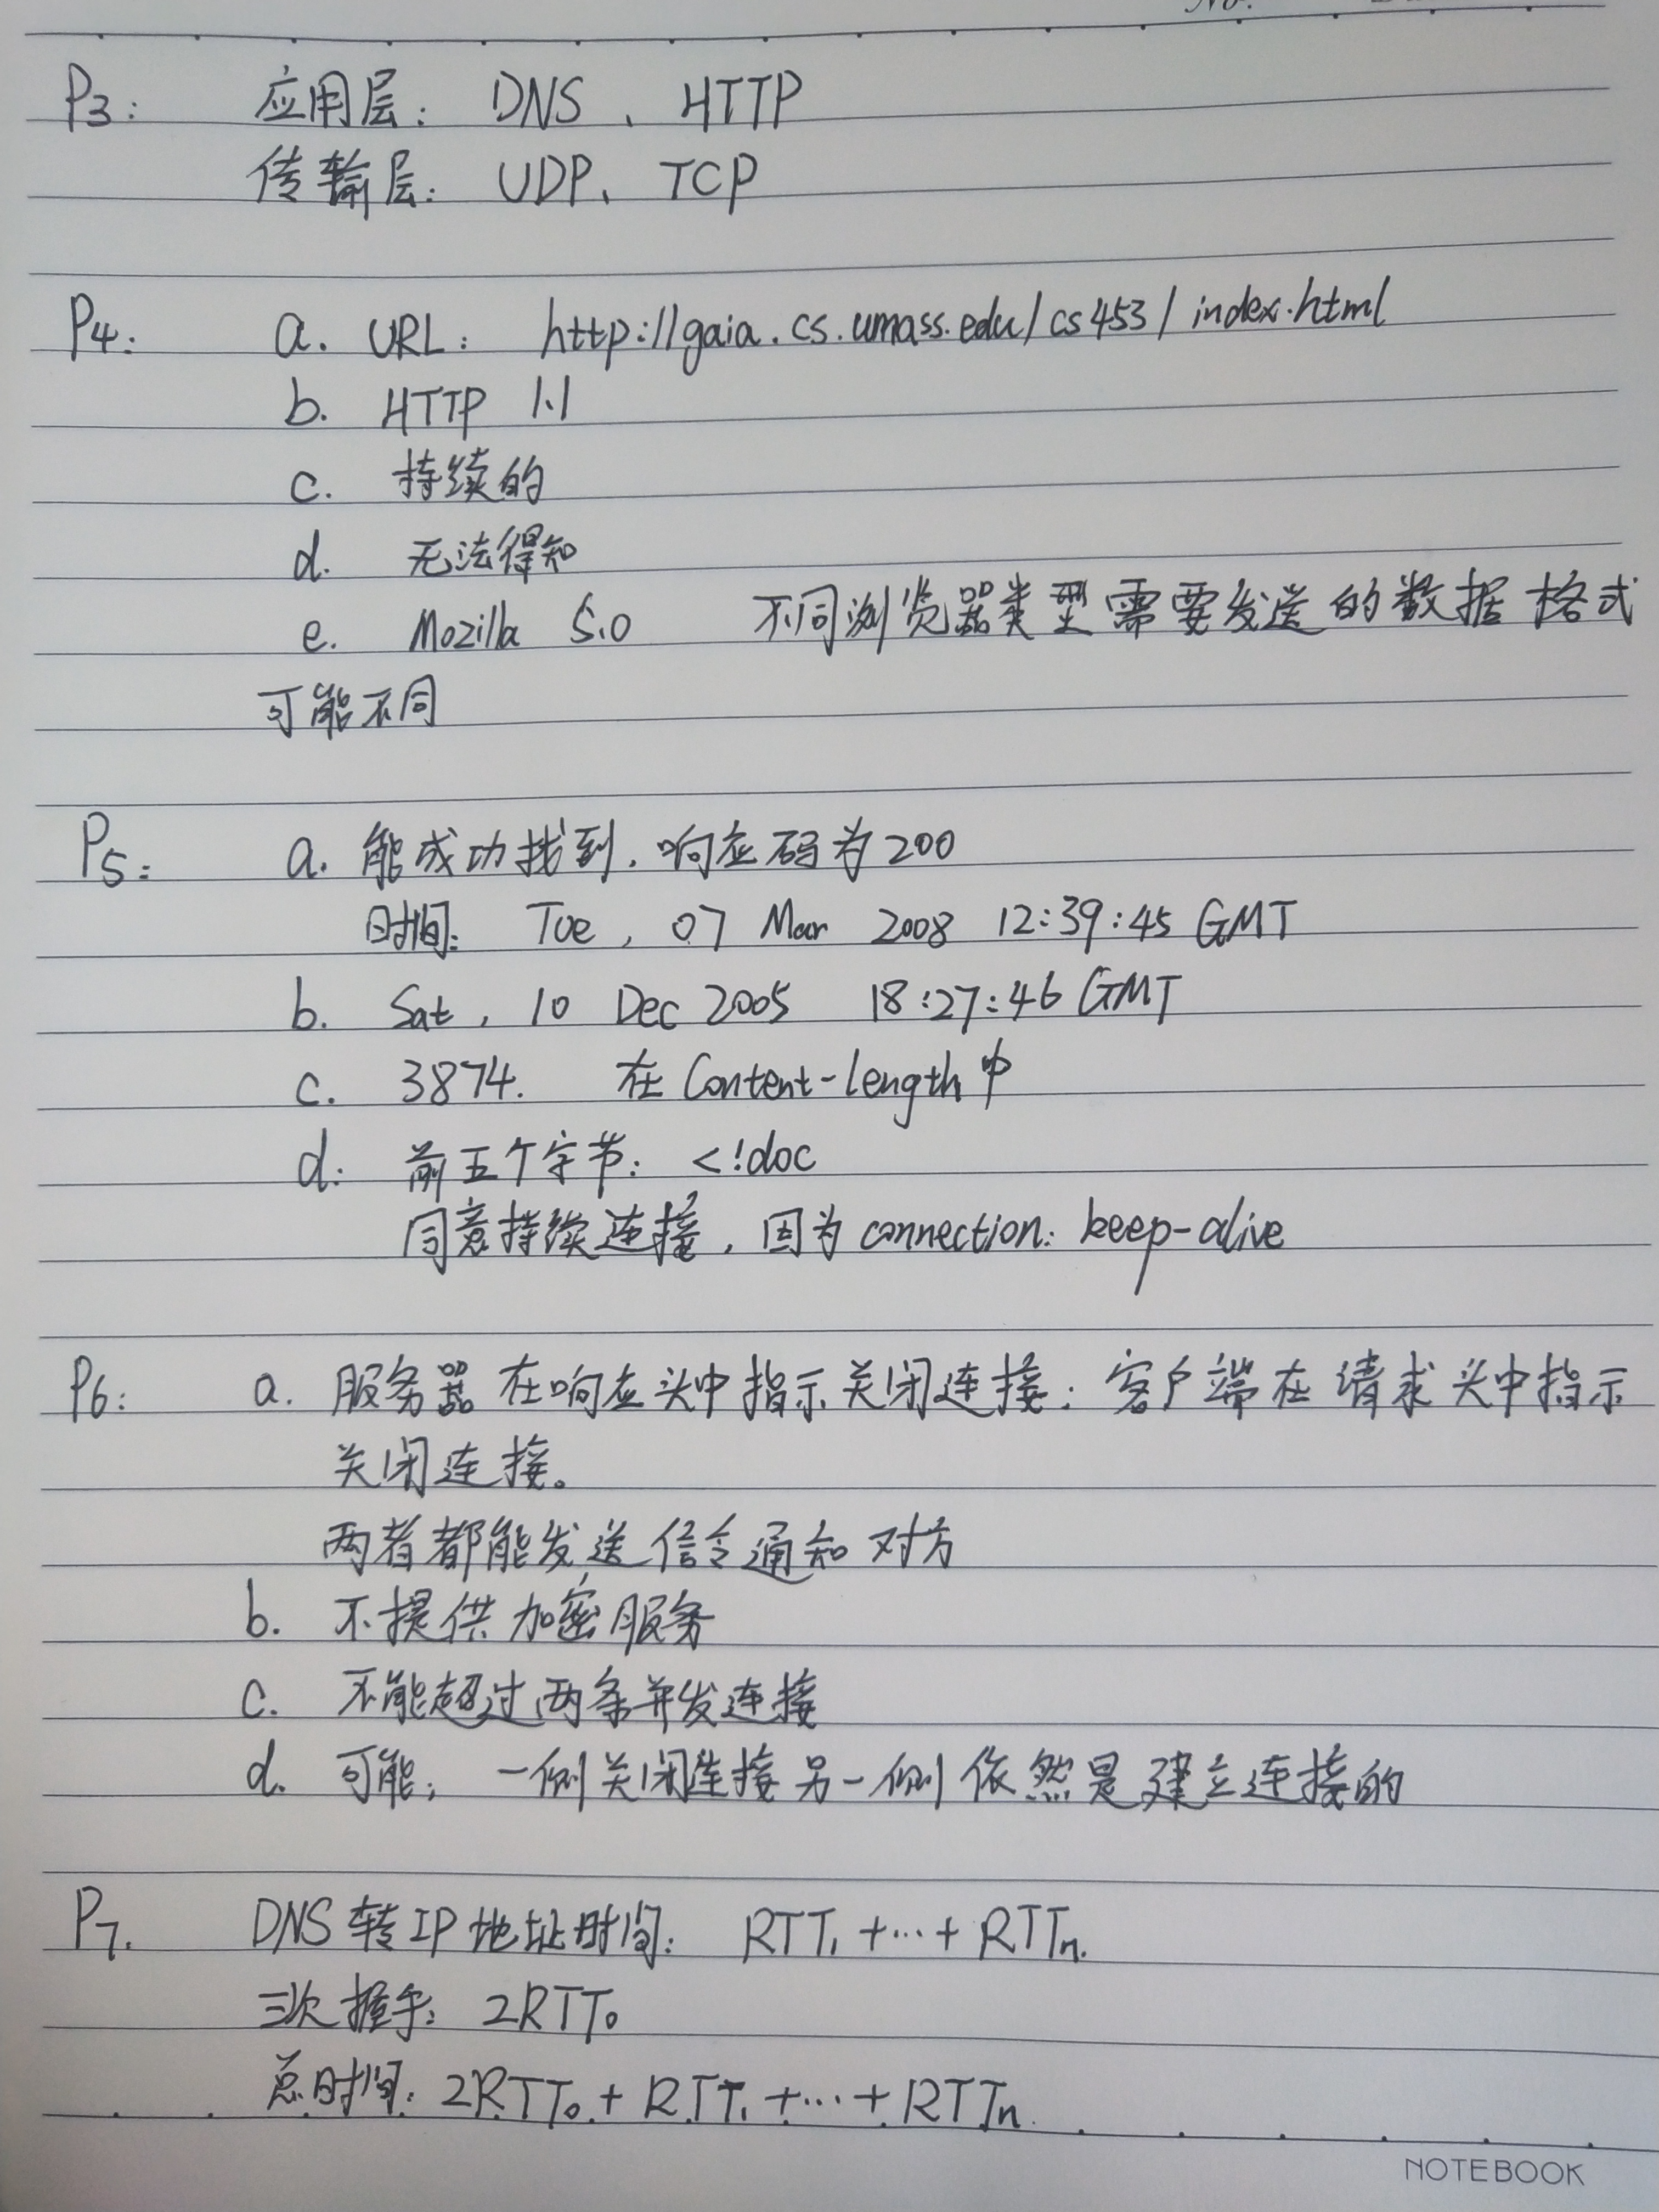 No.
P3: 应用层: DNS、HTTP
传输层: UDP、TCP
P4: a. URL: http://gaia.cs.umass.edu/cs453/index.html
b. HTTP 1.1
c. 持续的
d. 无法得知
e. Mozilla 5.0 不同浏览器类型需要发送的数据格式
可能不同
P5: a. 能成功找到,响应码为200
时间: Tue, 07 Mar 2008 12:39:45 GMT
b. Sat, 10 Dec 2005 18:27:46 GMT
c. 3874. 在 Content-length 中
d: 前五个字节: <!doc
同意持续连接,因为 connection: keep-alive
P6: a. 服务器在响应头中指示关闭连接;客户端在请求头中指示
关闭连接。
两者都能发送信令通知对方
b. 不提供加密服务
c. 不能超过两条并发连接
d. 可能; 一侧关闭连接另一侧依然是建立连接的
P7. DNS转IP地址时间: RTT₁ +…+ RTTₙ.
三次握手: 2RTT₀
总时间: 2RTT₀ + RTT₁ +…+ RTTₙ.
NOTEBOOK